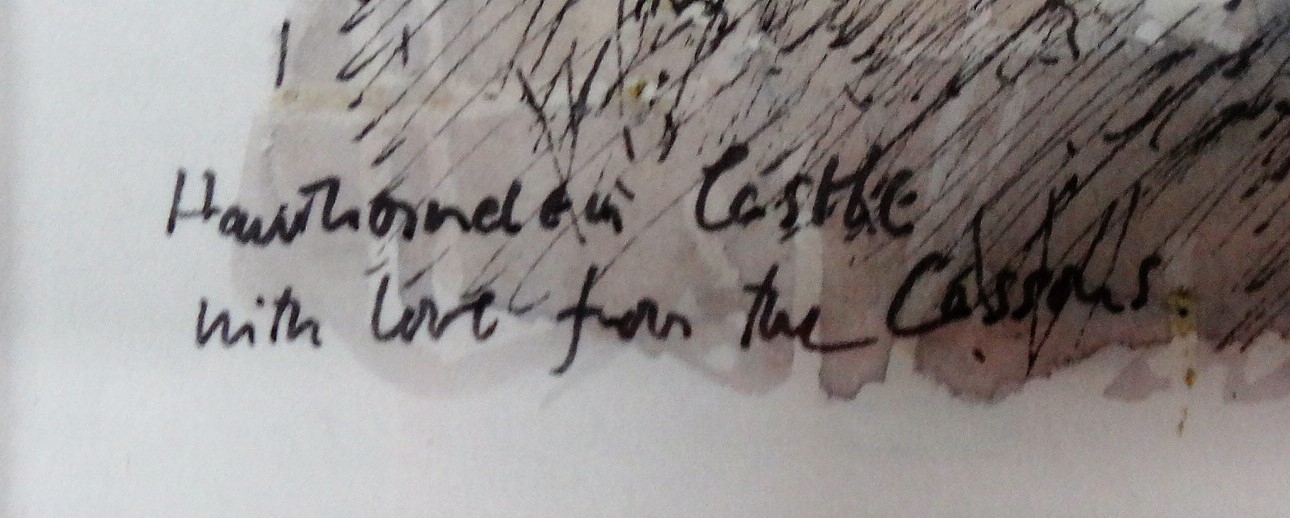 Hawthornden Castle
with love from the Cassons